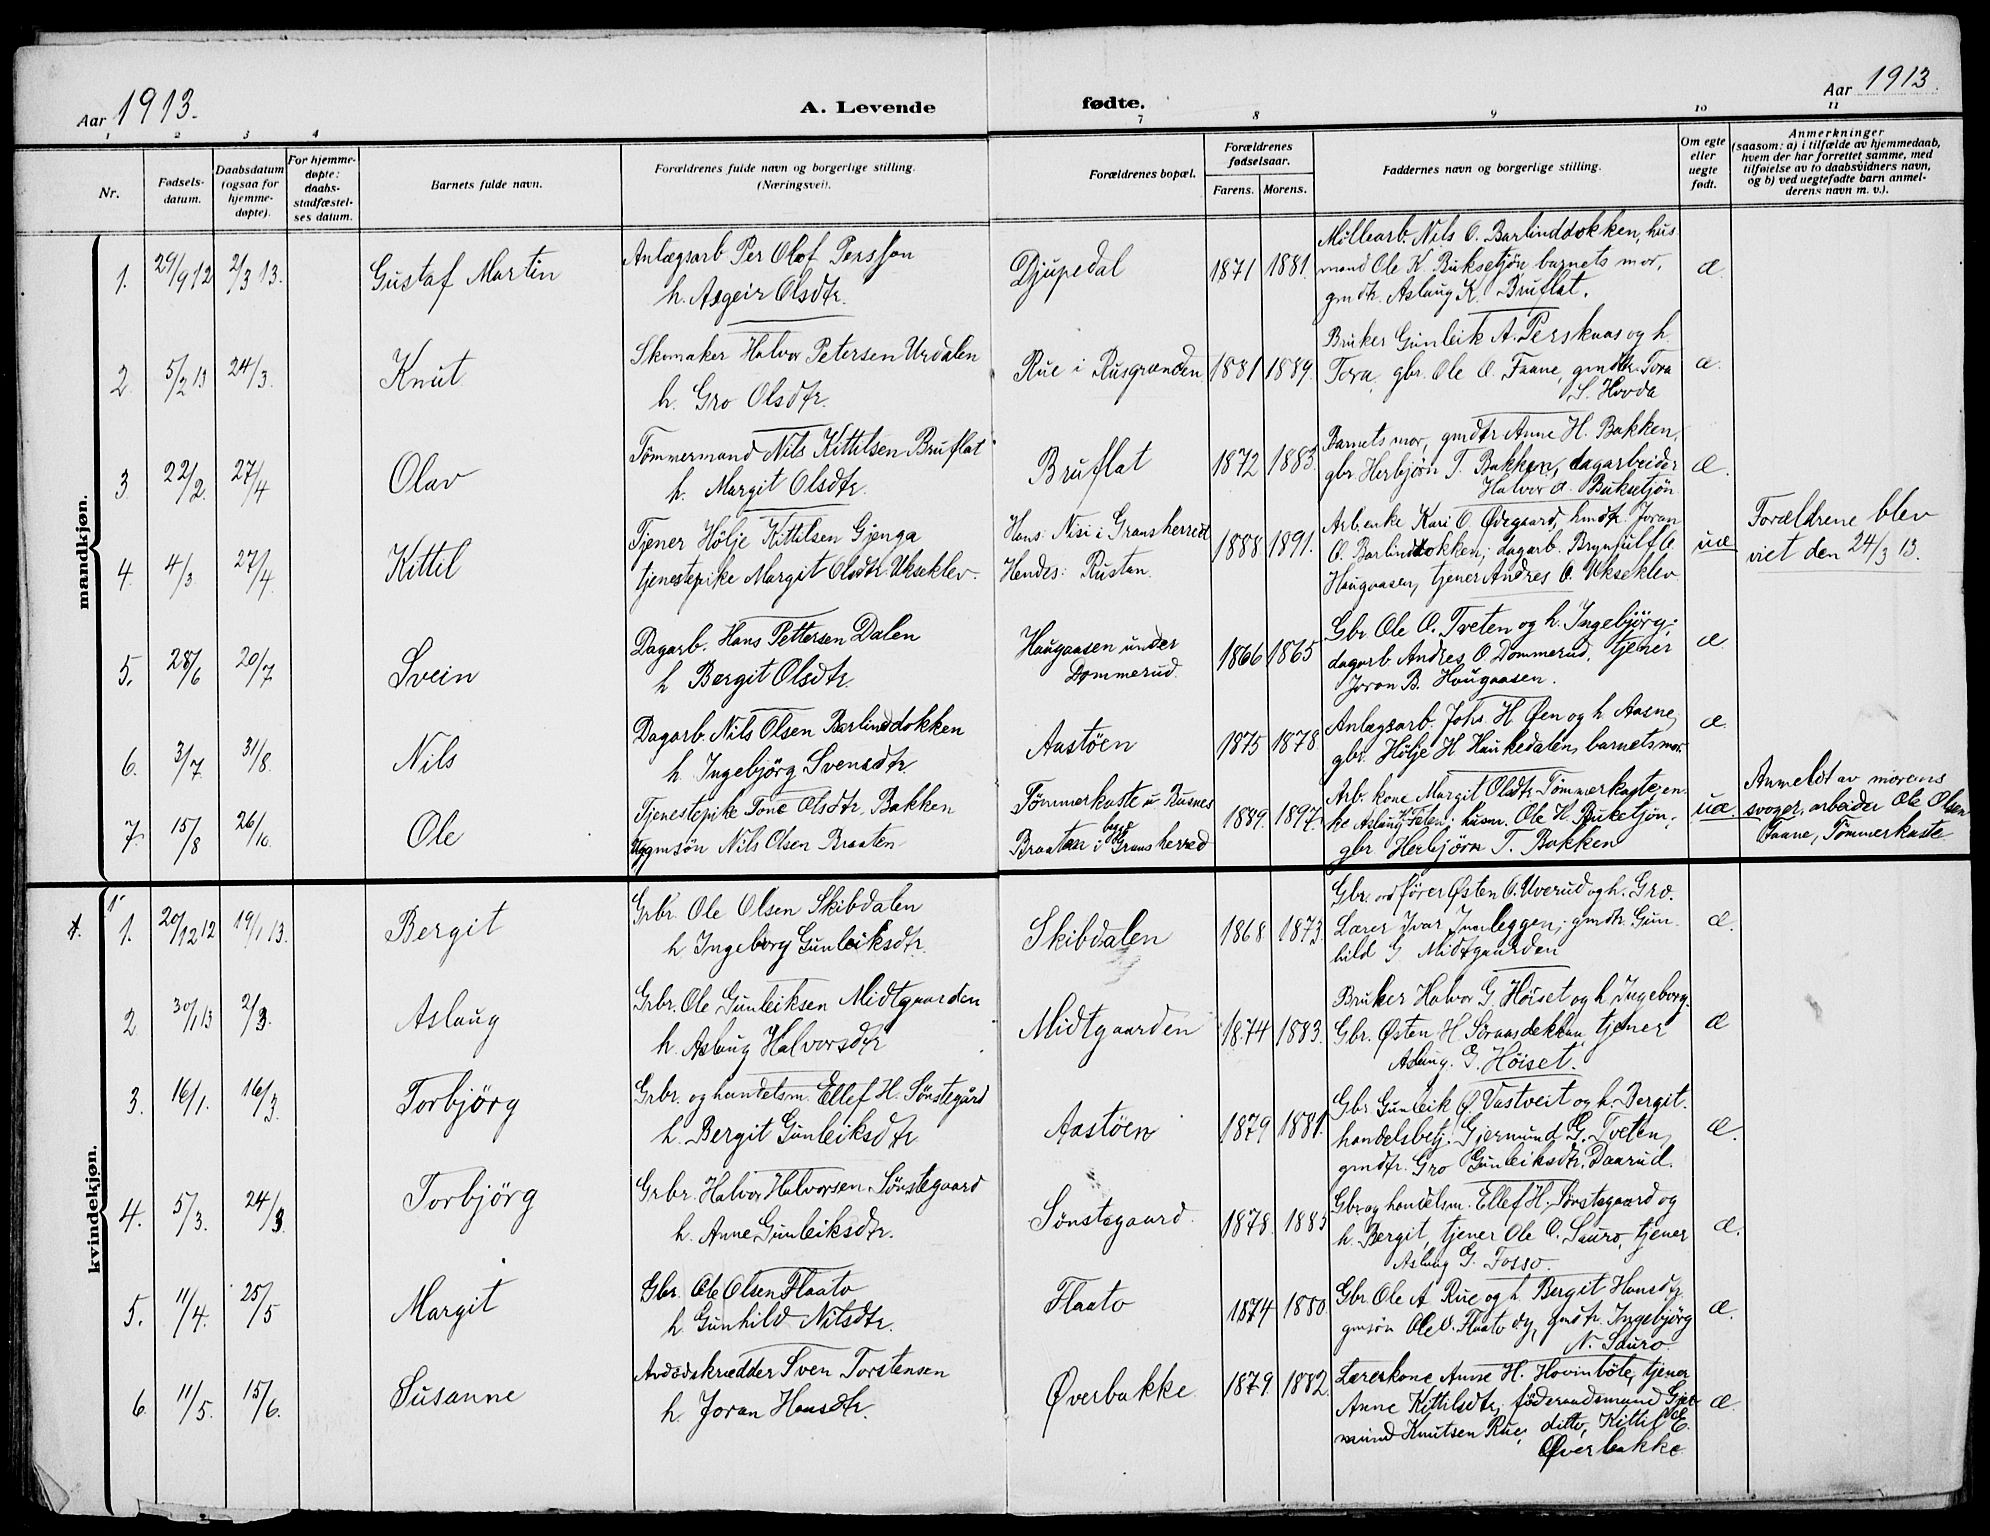 Aar 1913.
A. Levende fødte.
Aar 1913.
1 2 3 4 7 8 9 10 11
Nr.
Fødsels-
datum.
Daabsdatum
(ogsaa for
hjemme-
døpte).
For hjemme-
døpte:
daabs-
stadfæstel-
ses datum.
Barnets fulde navn.
Forældrenes fulde navn og borgerlige stilling.
(Næringsvei).
Forældrenes bopæl.
Forældrenes
fødselsaar.
Farens. Morens.
Faddernes navn og borgerlige stilling.
Om egte
eller
uegte
født.
Anmerkninger
(saasom: a) i tilfælde av hjemmedaab,
hvem der har forrettet samme, med
tilføielse av to daabsvidners navn,
og b) ved uegtefødte barn anmel-
derens navn m. v.).
mandkjøn.
1. 29/9 12 2/3 13. Gustaf Martin
Anlægsarb Per Olof Persson
h. Asgeir Olsdtr.
Djupedal 1871 1881.
Møllearb. Nils O. Barlinddokken, hus-
mand Ole K. Buksetjøn barnets mor,
gmdtr. Aslaug K. Bruflat.
æ
2. 5/2 13 24/3. Knut
Skomaker Halvor Petersen Urdalen
h. Gro Olsdtr.
Rue i Rusgrænden 1881 1889.
Bruker Gunleik A. Perskaas og h.
Tora, gbr. Ole O. Faane, gmdtr. Tora
S. Hovda
æ.
3. 22/2. 27/4 Olav
Tømmermand Nils Kittilsen Bruflat
h. Margit Olsdtr.
Bruflat 1872 1883.
Barnets mor, gmdtr Anne H. Bakken,
gbr. Herbjørn T. Bakken, dagarbeider
Halvor A. Buksetjøn
æ.
4. 4/3 27/4. Kittil
Tjener Hølje Kittilsen Gjenga
tjenestepike Margit Olsdtr. Ukseklev.
Hans: Nisi i Gransherred
Hendes: Rustan.
1888 1891.
Arb.enke Kari O. Ødegaard, hmdtr. Joran
O. Barlinddokken; dagarb. Brynjulf O.
Haugaasen, tjener Andres O. Ukseklev
uæ
Forældrene blev
viet den 24/3 13.
5. 28/6 20/7 Svein
Dagarb. Hans Pettersen Dalen
h Bergit Olsdtr.
Haugaasen under
Dommerud.
1866 1865
Gbr. Ole O. Tveten og h. Ingebjørg;
dagarb Andres O. Dommerud, tjener
Joran B. Haugaasen.
æ.
6. 3/7. 31/8. Nils
Dagarb. Nils Olsen Barlinddokken
h. Ingebjørg Svensdtr.
Aastøen 1875 1878.
Anlægsarb. Johs. H. Øen og h Aasne,
gbr. Hølje H. Haukedalen, barnets mor.
æ.
7. 15/8 26/10. Ole
Tjenestepike Tone Olsdtr. Bakken
Ug gmsøn Nils Olsen Braaten
Tømmerkaste u Busnes
Braaten i Gransherred
1889. 1897.
Arb. kone Margit Olsdtr. Tømmerkaste, en-
ke Aslaug Felen; husm. Ole H. Buksetjøn;
gbr Herbjørn T. Bakken
uæ.
Anmeldt av morens
svoger, arbeider Ole Olsen
Faane, Tømmerkaste
kvindekjøn.
1. 20/12 12 19/1 13. Bergit
Grbr. Ole Olsen Skibdalen
h Ingeborg Gunleiksdtr.
Skibdalen 1868 1873.
Gbr. ordfører Østen O. Uverud og h. Gro.
Lærer Ivar Ivarleggen; gmdtr. Gun-
hild G Midtgaarden
æ.
2 30/1 13 2/3. Aslaug
Grbr. Ole Gunleiksen Midtgaarden
h. Aslaug Halvorsdtr
Midtgaarden 1874 1883.
Bruker Halvor G. Høiset og h. Ingeborg.
Gbr. Østen H. tjener
Aslaug. G. Høiset.
æ
3. 16/1. 16/3. Torbjørg
Grbr. og handelsm. Ellef H. Sønstegård
h. Bergit Gunleiksdtr.
Aastøen 1879 1881.
Gbr. Gunleik Ø. Vastveit og h. Bergit.
handelsbetj. Gjermund G. Tveten,
gmdtr. Gro Gunleiksdtr. Daarud.
æ.
4. 5/3. 24/3 Torbjørg
Grbr. Halvor Halvorsen Sønstegaard
h. Anne Gunleiksdtr.
Sønstegaard. 1878. 1885
Gbr og handelsm. Ellef H. Sønstegaard og
h. Bergit, tjener Ole O. Sauro, tjener
Aslaug G. Fosso.
æ.
5. 11/4. 25/5 Margit
Gbr. Ole Olsen Flaato
h. Gunhild Nilsdtr.
Flaato 1874 1880
Gbr. Ole A Rue og h Bergit Hansdtr,
gmsøn Ole O. Flaato dy, gmdtr. Ingebjørg
N. Sauro.
æ.
6. 11/5. 15/6. Susanne
Sven Torstensen
h. Joran Hansdtr.
Øverbakke. 1879 1882.
Lærerkone Anne H. Hovinbøle, tjener
Anne Kittilsdtr, føderaadsmand Gjer-
mund Knutsen Rue, ditto, Kittil E.
Øverbakke.
æ.